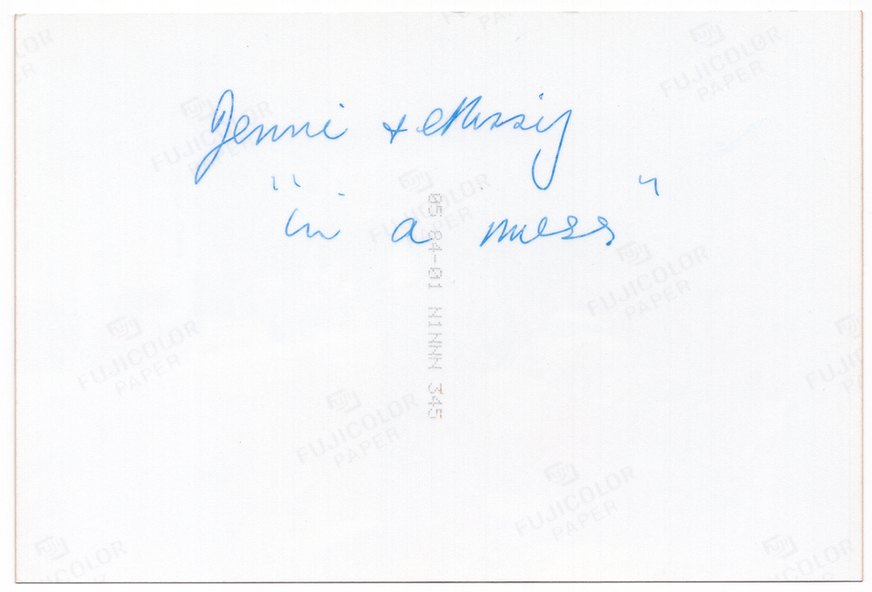 Jenni + Missy
"in a mess"
05 84-01 N1NNN 345
FUJICOLOR
PAPER
FUJICOLOR
PAPER
FUJICOLOR
PAPER
FUJICOLOR
PAPER
FUJICOLOR
PAPER
FUJICOLOR
PAPER
FUJICOLOR
PAPER